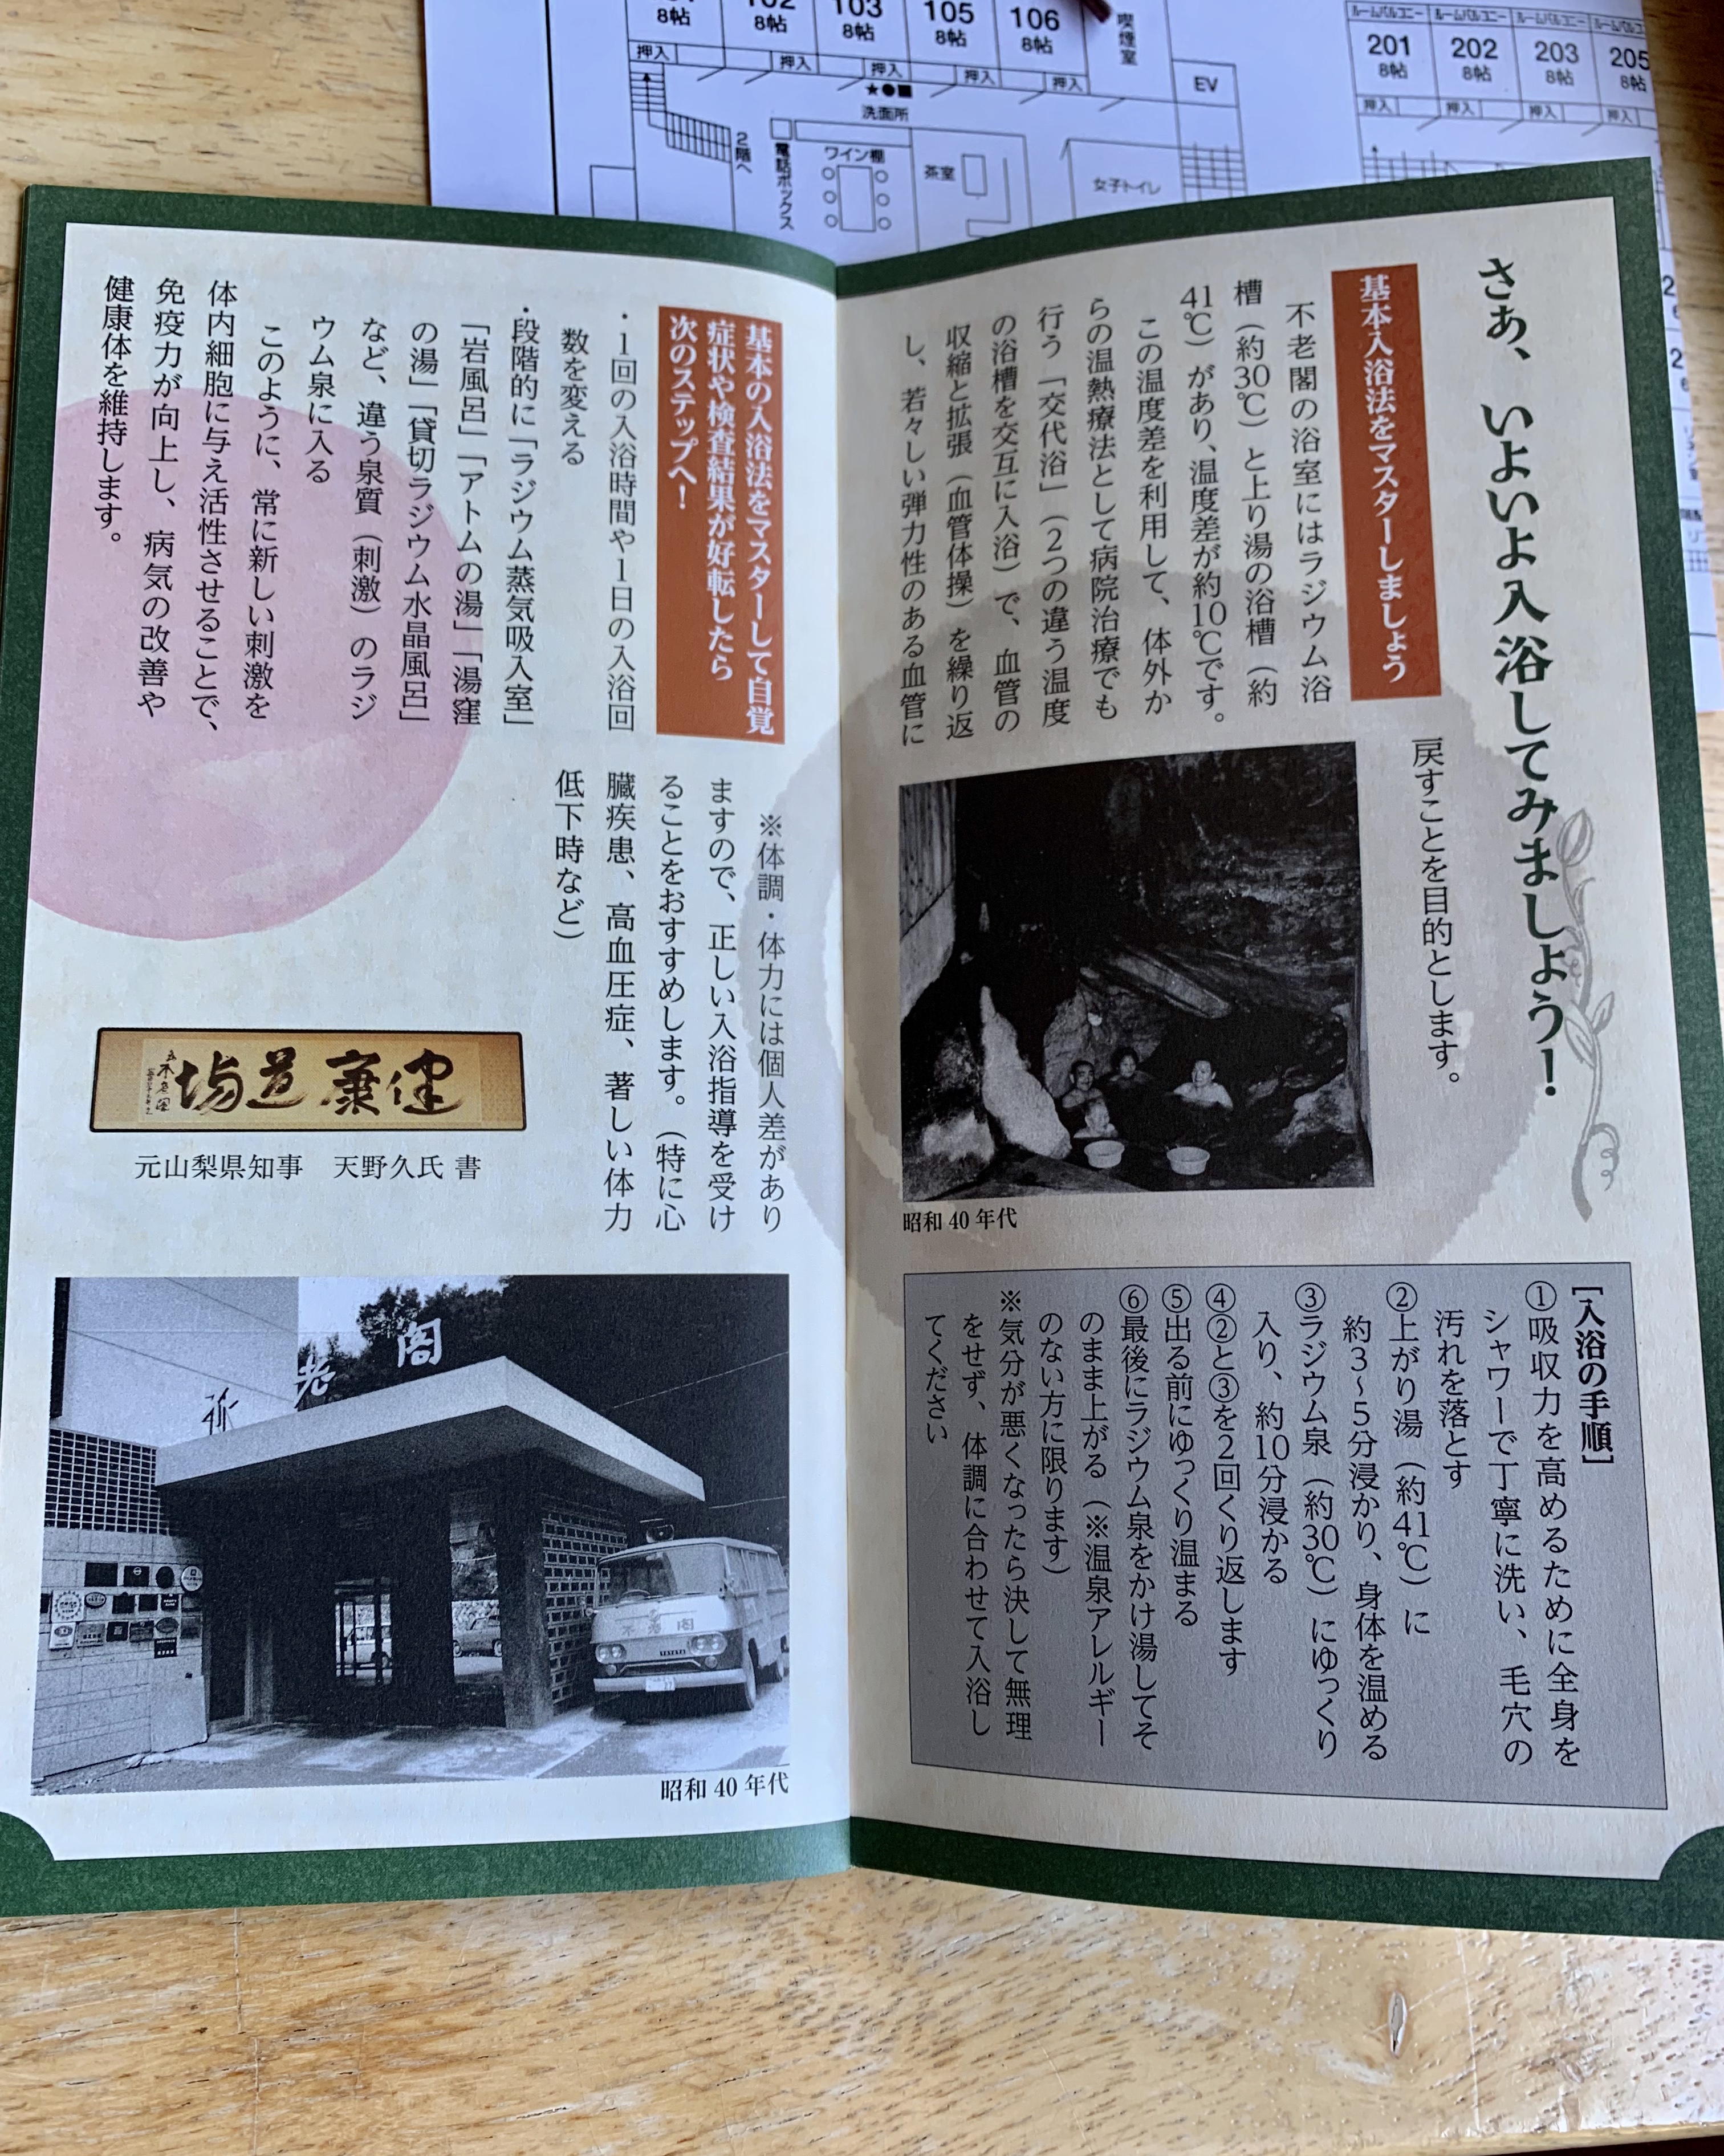 さあ、いよいよ入浴してみましょう！
基本入浴法をマスターしましょう
不老閣の浴室にはラジウム浴
槽（約30℃）と上り湯の浴槽（約
41℃）があり、温度差が約10℃です。
この温度差を利用して、体外か
らの温熱療法として病院治療でも
行う「交代浴」（2つの違う温度
の浴槽を交互に入浴）で、血管の
収縮と拡張（血管体操）を繰り返
し、若々しい弾力性のある血管に
戻すことを目的とします。
昭和40年代
［入浴の手順］
①吸収力を高めるために全身を
シャワーで丁寧に洗い、毛穴の
汚れを落とす
②上がり湯（約41℃）に
約3～5分浸かり、身体を温める
③ラジウム泉（約30℃）にゆっくり
入り、約10分浸かる
④②と③を2回くり返します
⑤出る前にゆっくり温まる
⑥最後にラジウム泉をかけ湯してそ
のまま上がる（※温泉アレルギー
のない方に限ります）
※気分が悪くなったら決して無理
をせず、体調に合わせて入浴し
てください
基本の入浴法をマスターして自覚
症状や検査結果が好転したら
次のステップへ！
・1回の入浴時間や1日の入浴回
数を変える
・段階的に「ラジウム蒸気吸入室」
「岩風呂」「アトムの湯」「湯窪
の湯」「貸切ラジウム水晶風呂」
など、違う泉質（刺激）のラジ
ウム泉に入る
このように、常に新しい刺激を
体内細胞に与え活性させることで、
免疫力が向上し、病気の改善や
健康体を維持します。
※体調・体力には個人差があり
ますので、正しい入浴指導を受け
ることをおすすめします。（特に心
臓疾患、高血圧症、著しい体力
低下時など）
健康道場
元山梨県知事　天野久氏 書
不老閣
不老閣
昭和40年代
102
8帖
103
8帖
105
8帖
106
8帖
8帖
押入
押入
押入
押入
押入
喫煙室
EV
★●■
洗面所
2階へ
電話ボックス
ワイン棚
茶室
女子トイレ
ルームバルコニー
ルームバルコニー
ルームバルコニー
201
8帖
202
8帖
203
8帖
205
8帖
押入
押入
押入
押入